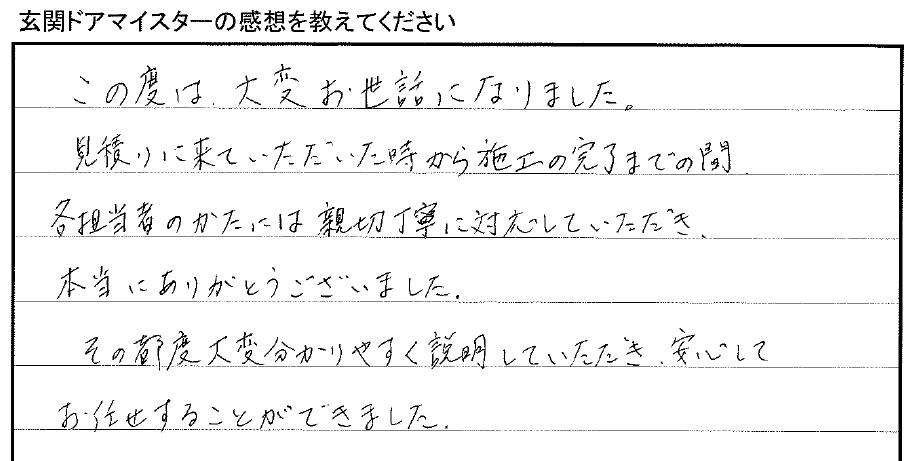 玄関ドアマイスターの感想を教えてください
この度は、大変お世話になりました。
見積りに来ていただいた時から施工の完了までの間、
各担当者のかたには親切丁寧に対応していただき、
本当にありがとうございました。
その都度大変分かりやすく説明していただき、安心して
お任せすることができました。